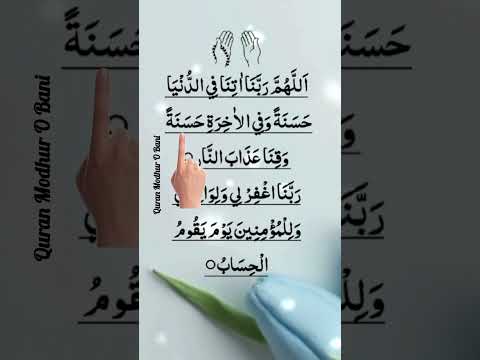 اَللّٰهُمَّ رَبَّنَا اٰتِنَا فِي الدُّنْيَا
حَسَنَةً وَفِي الْاٰخِرَةِ حَسَنَةً
وَقِنَا عَذَابَ النَّارِ
رَبَّنَا اغْفِرْ لِي
وَلِلْمُؤْمِنِينَ يَوْمَ يَقُومُ
الْحِسَابُ○
Quran Modhur O Bani
Quran Modhur O Bani